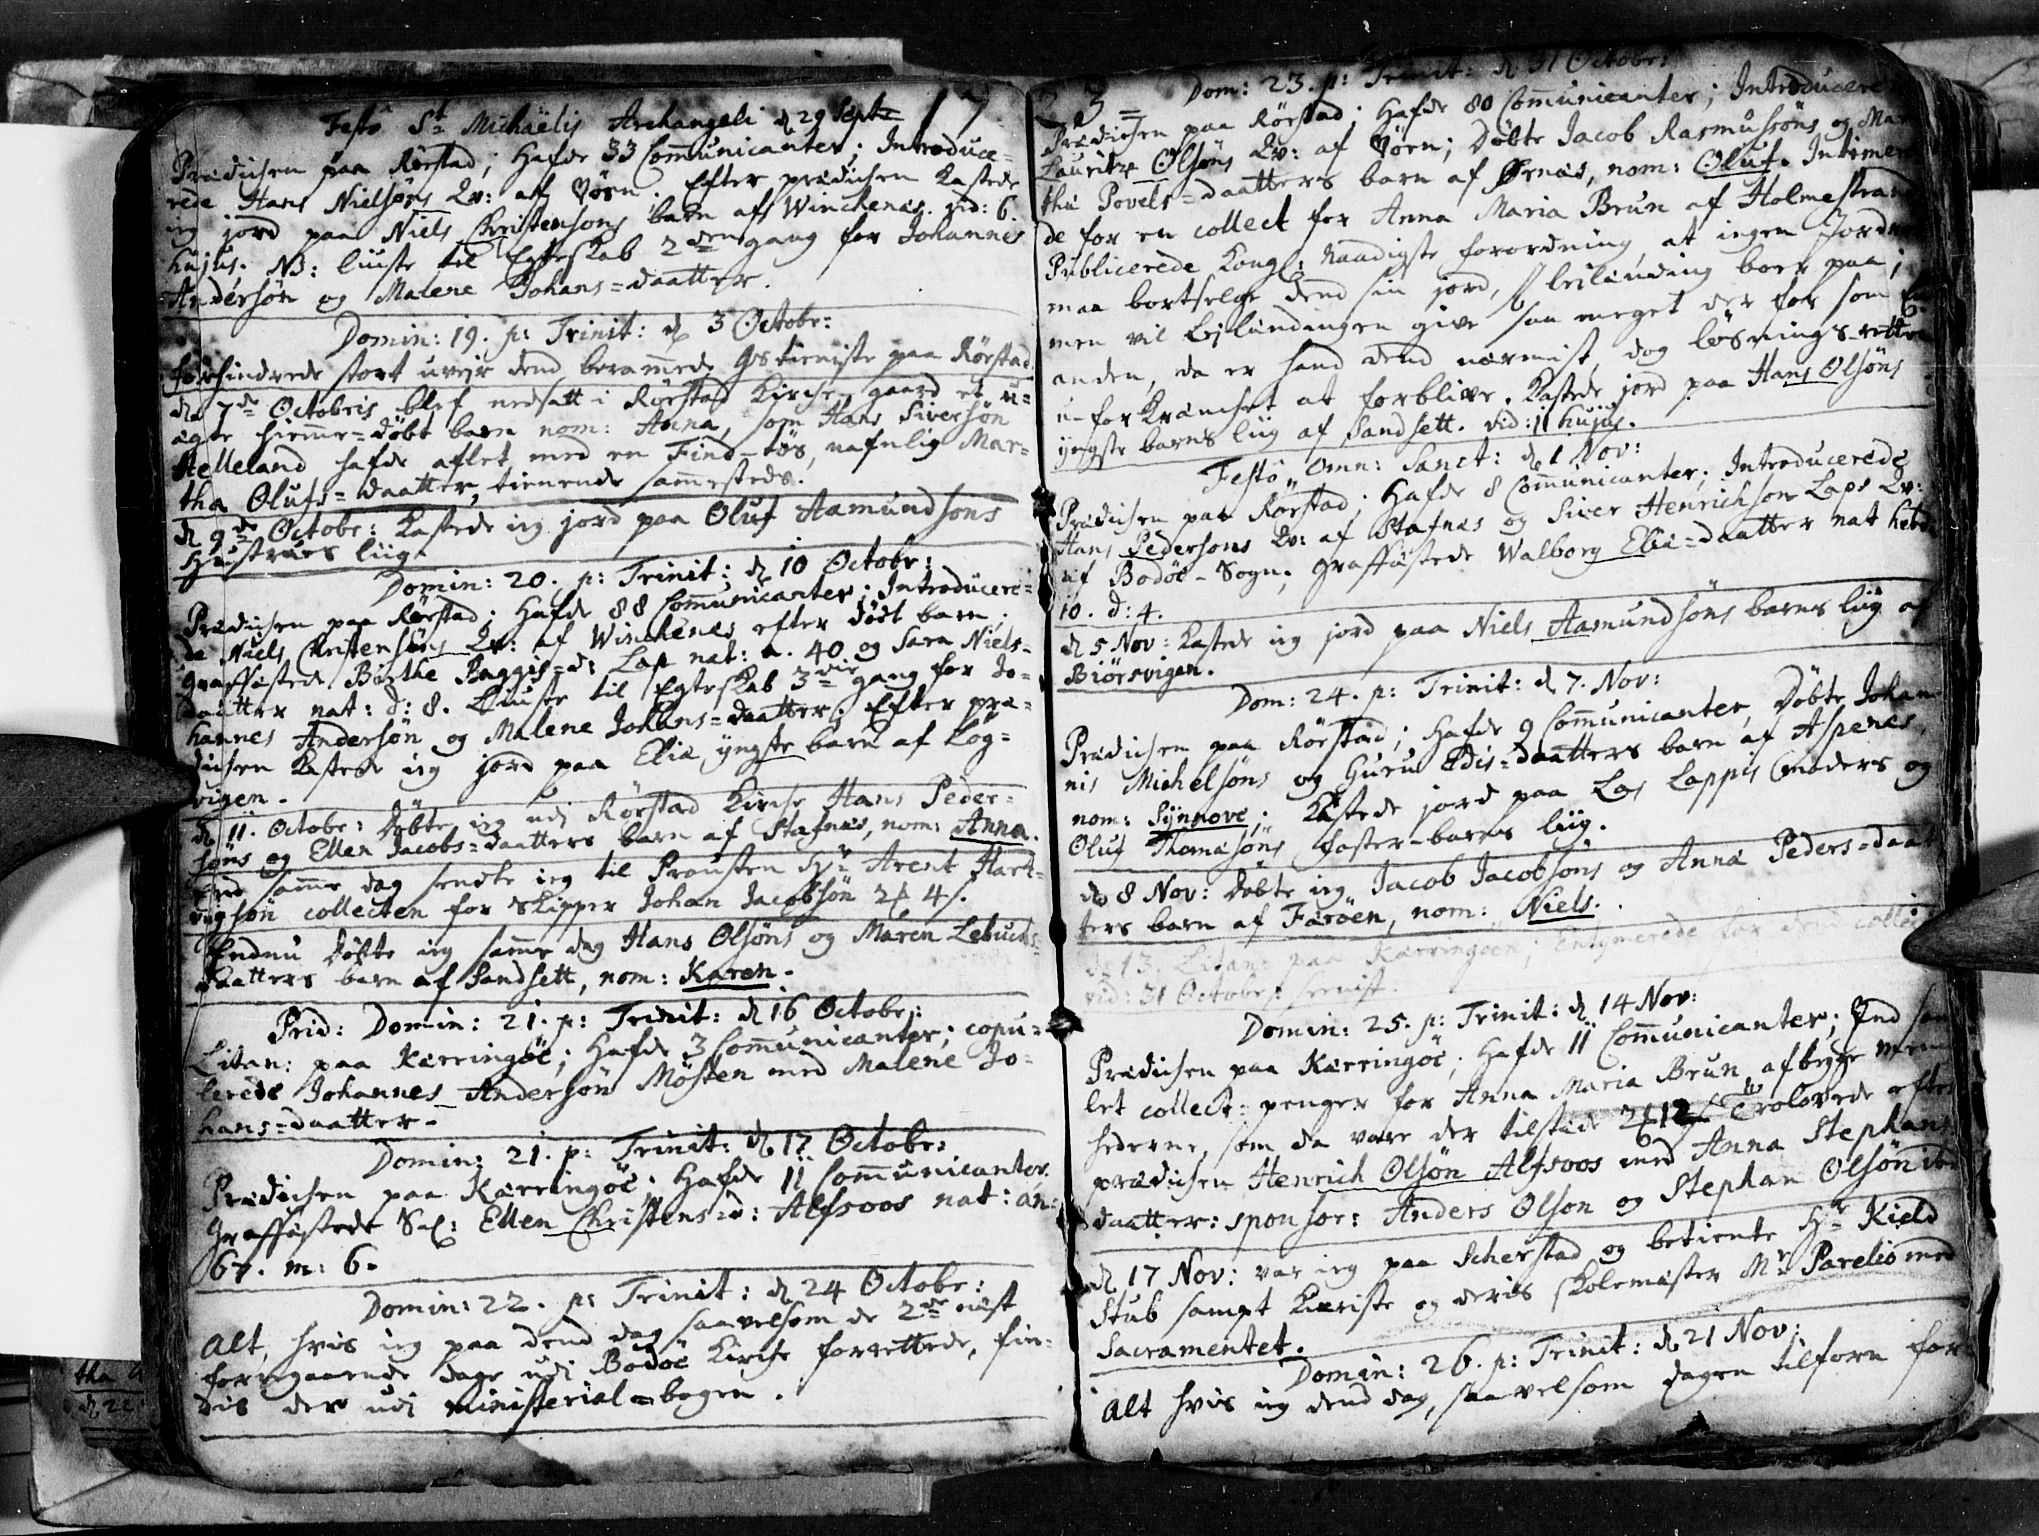 Festo St Michaëlis Archangeli d 29 Septr 17
Prædichen paa Rørstad; Hafde 33 Communicanter; Introduce-
rede Hans Nielsøns Qv: af Vøen. Efter prædichen Kastede
ieg jord paa Niels Christensøns barn af Winchenæs. vid: 6.
hujus. NB: liuste til Egteskab 2den gang for Johannes
Andersøn og Malene Johans=daatter.
Domin: 19. p: Trinit: d 3 Octobr:
forhindrede stort uvejr dend berammede Gs tieniste paa Rørstad
d 7de Octobris blef nedsatt i Rørstad Kirche=gaard et u-
ægte hiemme=døbt barn nom: Anna, som Hans Siversøn
Helleland hafde aflet med en Find=tøs, nafnlig Mar-
tha Olufs=daatter, tienende sammesteds.
d 9de Octobr: Kastede ieg jord paa Oluf Aamundsøns
Hustrues liig.
Domin: 20. p: Trinit: d 10 Octobr:
Prædichen paa Rørstad; Hafde 88 Communicanter; Introducere-
de Niels Christensøns Qv: af Winchenes efter dødt barn;
Graffæstede Birthe Baggis=d: Lap nat: a. 40 og Sara Niels-
daatter nat: d: 8. Liuste til Egteskab 3die gang for Jo-
hannes Andersøn og Malene Johans=daatter. Efter præ-
dichen Kastede ieg jord paa Eliæ yngste barn af Løg-
vigen.
d 11. Octobr: Døbte ieg udi Rørstad Kirche Hans Peder-
søns og Ellen Jacobs=daatters barn af Stafnæs, nom: Anna.
End samme dag sendte ieg til Prousten Hr Arent Hart-
vigsøn collecten for Skipper Johan Jacobsøn 2 4 s.
Endnu Døbte ieg samme dag Hans Olsøns og Maren Lebuchs-
daatters barn af Sandsett, nom: Karen.
Prid: Domin: 21. p: Trinit: d 16 Octobr:
Litan: paa Kærringøe; Hafde 3 Communicanter; copu-
lerede Johannes Andersøn Møsten med Malene Jo-
hans=daatter.
Domin: 21. p: Trinit: d 17 Octobr:
Prædichen paa Kærringøe; Hafde 11 Communicanter,
Graffæstede Sal: Ellen Christens=d: Alfsoos nat: an:
67. m: 6.
Domin: 22. p: Trinit: d 24 Octobr:
Alt, hvis ieg paa dend dag saavelsom de 2de nest
foregaaende dage udi Bodøe Kirche forrettede, fin-
dis der udi ministerial=bogen.
23= Dom: 23. p: Trinit: d 31 Octobr:
Prædichen paa Rørstad; Hafde 80 Communicanter; Introducere
Lauritz Olsøns Qv: af Vøen; Døbte Jacob Rasmussøns og Mar
the Povels=daatters barn af Ørnæs, nom: Oluf. Intimere
de for en collect for Anna Maria Brun af Holmestrand
Publicerede Kongl: Naadigste forordning, at ingen Jord
maa bortselge dend sin jord, Leilending boer paa;
men vil Lejlendingen give saa meget der for som en
anden, da er hand dend nærmist, dog løsnings-retten
u-forkrenchet at forblive. Kastede jord paa Hans Olsøns
yngste barns liig af Sandsett. vid: 11 hujus.
Festo Omn: Sanct: d 1 Nov:
Prædichen paa Rørstad; Hafde 8 Communicanter; Introducerede
Hans Pedersøns Qv: af Stafnæs og Siver Henrichsøn Laps Qv:
af Bodøe-Sogn. Graffæstede Walborg Eliæ=daatter nat hebd
10. d: 4.
d 5 Nov: Kastede ieg jord paa Niels Aamundsøns barns liig af
Biørsvigen.
Dom: 24. p: Trinit: d 7. Nov:
Prædichen paa Rørstad; Hafde 9 Communicanter, Døbte Johan
nis Michelsøns og Guru Edis=daatters barn af Aspenæs,
nom: Synnove; Kastede jord paa Las Lappis moders og
Oluf Thomæsøns foster-barns liig.
d 8 Nov: døbte ieg Jacob Jacobsøns og Anna Peders=daat
ters barn af Færöen, nom: Niels.
d 13. Litan: paa Kærringøen; Entymerede for dend collect
vid: 31 Octobr: sernist.
Domin: 25. p: Trinit: d 14 Nov:
Prædichen paa Kærringøe; Hafde 11 Communicanter; Ind sam
let collect=penger for Anna Maria Brun af begge meen
hederne, som da vare der tilstæde 2 12 s Trolovede efter
prædichen Henrich Olsøn Alfsoos med Anna Stephans
daatter: sponsor: Anders Olson og Stephan Olsøn ibi
d 17 Nov: var ieg paa Scherstad og betiente Hr Kield
Stub sampt Kiæriste og deris skolemester Mr Parelio med
Sacramentet.
Domin: 26. p: Trinit: d 21 Nov:
Alt hvis ieg dend dag, saavelsom dagen tilforn for